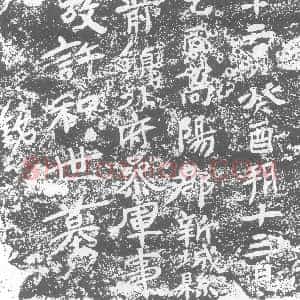 十二月癸酉朔十三日
乙酉高陽郡新城縣
前鎮北府參軍事
故許和世墓